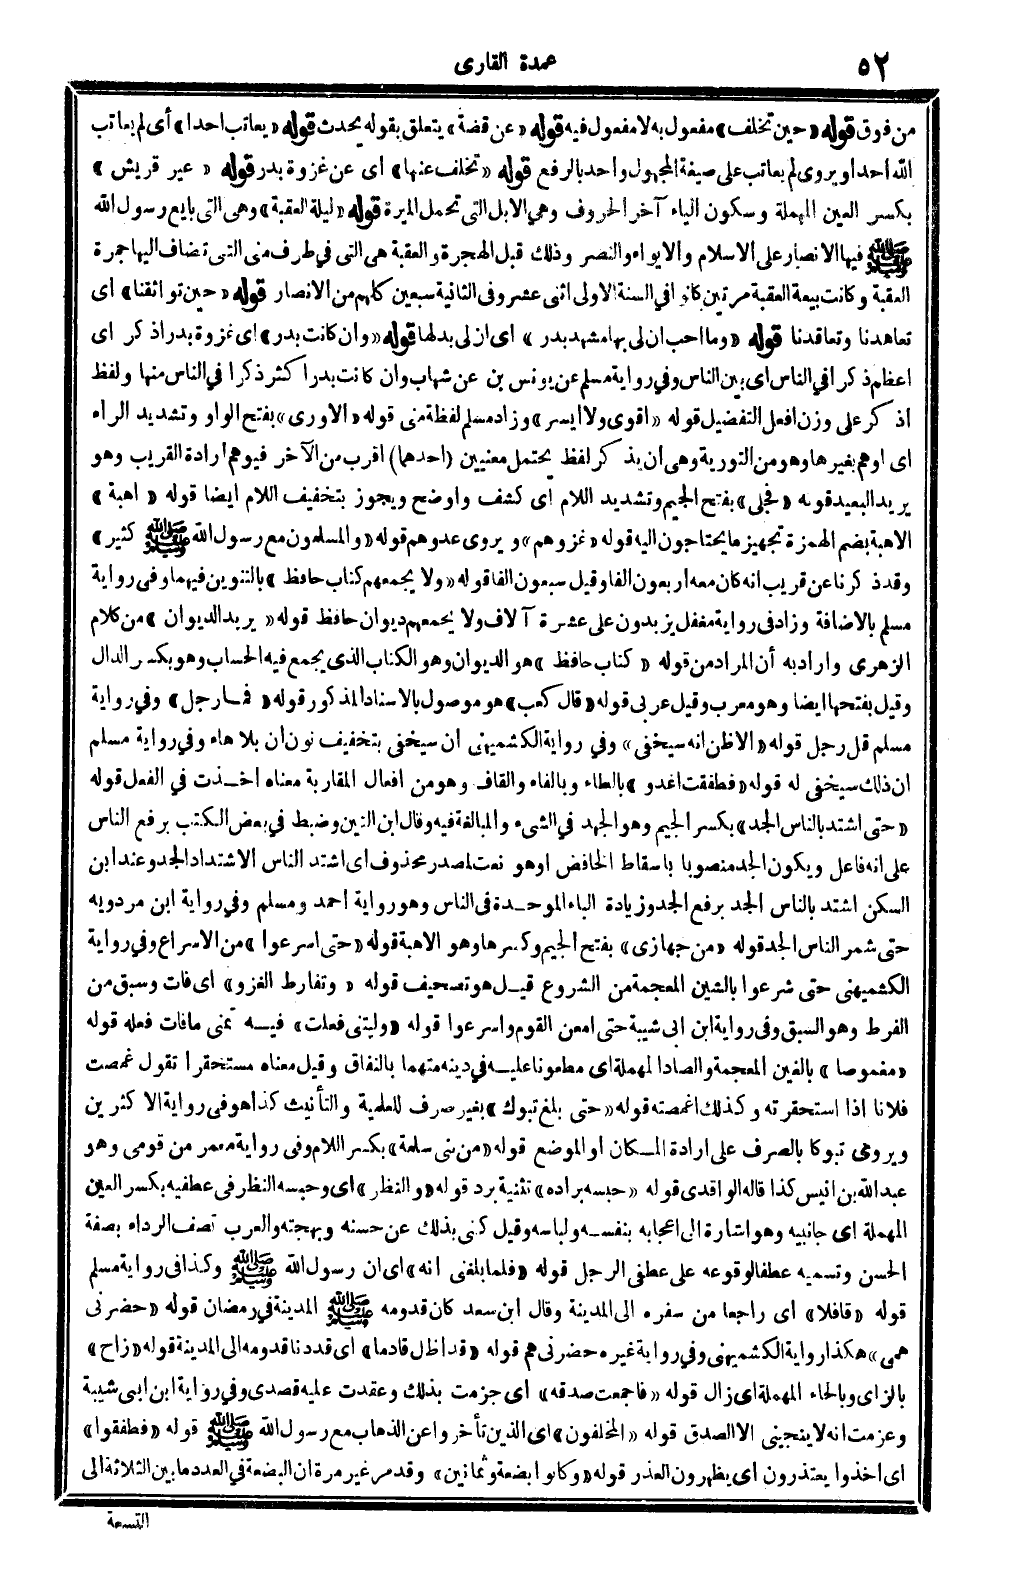 ٥٢
عمدة القارى
من فوق قوله «حين تخلف» مفعول به لا مفعول فيه قوله «عن قصة» يتعلق بقوله يحدث قوله «يعاتب احدا» أى لم يعاتب
الله أحدا ويروى لم يعاتب على صيغة المجهول واحد بالرفع قوله «تخلف عنها» اى عن غزوة بدر قوله « عير قريش »
بكسر العين المهملة وسكون الياء آخر الحروف وهي الابل التى تحمل الميرة قوله «ليلة العقبة» وهى التى بايع رسول الله
ﷺ فيها الانصار على الاسلام والايواء والنصر وذلك قبل الهجرة والعقبة هى التى في طرف منى التى تضاف اليها جمرة
العقبة وكانت بيعة العقبة مرتين كانوا في السنة الاولى اثنى عشر وفى الثانية سبعين كلهم من الانصار قوله «حين تواثقنا» اى
تعاهدنا وتعاقدنا قوله «وما احب ان لى بها مشهد بدر » اى ان لى بدلها قوله «وان كانت بدر» اى غزوة بدر اذكر اى
اعظم ذكرا في الناس اى بين الناس وفي رواية مسلم عن يونس بن عن شهاب وان كانت بدر اكثر ذكرا في الناس منها ولفظ
اذكر على وزن افعل التفضيل قوله «اقوى ولا ايسر» وزاد مسلم لفظة منى قوله «الاورى» بفتح الواو وتشديد الراء
اى اوهم بغيرها وهو من التورية وهى ان يذكر لفظ يحتمل معنيين (احدهما) اقرب من الآخر فيوهم ارادة القريب وهو
يريد البعيد قوله «فجلى» بفتح الجيم وتشديد اللام اى كشف واوضح ويجوز بتخفيف اللام ايضا قوله « اهبة »
الاهبة بضم الهمزة تجهيز ما يحتاجون اليه قوله «غزوهم» ويروى عدوهم قوله «والمسلمون مع رسول الله ﷺ كثير»
وقد ذكرنا عن قريب انه كان معه اربعون الفا وقيل سبعون الفا قوله «ولا يجمعهم كتاب حافظ» بالتنوين فيهما وفى رواية
مسلم بالاضافة وزاد فى رواية مغفل يزيدون على عشرة آلاف ولا يجمعهم ديوان حافظ قوله « يريد الديوان » من كلام
الزهرى واراد به أن المراد من قوله « كتاب حافظ » هو الديوان وهو الكتاب الذى يجمع فيه الحساب وهو بكسر الدال
وقيل بفتحها ايضا وهو معرب وقيل عربى قوله «قال كعب» هو موصول بالاسناد المذكور قوله « فما رجل» وفي رواية
مسلم قل رجل قوله «الا ظن انه سيخفى» وفي رواية الكشميهنى ان سيخفى بتخفيف نون ان بلا هاء وفي رواية مسلم
ان ذلك سيخفى له قوله «فطفقت اغدو » بالطاء وبالفاء والقاف وهو من افعال المقاربة معناه اخذت في الفعل قوله
«حتى اشتد بالناس الجد» بكسر الجيم وهو الجهد في الشىء والمبالغة فيه وقال ابن التين وضبط في بعض الكتب برفع الناس
على انه فاعل ويكون الجد منصوبا باسقاط الخافض او هو نعت لمصدر محذوف اى اشتد الناس الاشتداد الجد وعند ابن
السكن اشتد بالناس الجد برفع الجد وزيادة الباء الموحدة فى الناس وهو رواية احمد ومسلم وفي رواية ابن مردويه
حتى شمر الناس الجد قوله «من جهازى» بفتح الجيم وكسرها وهو الاهبة قوله «حتى اسرعوا »من الاسراع وفي رواية
الكشميهنى حتى شرعوا بالشين المعجمة من الشروع قيل هو تصحيف قوله « وتفارط الغزو» اى فات وسبق من
الفرط وهو السبق وفى رواية ابن ابى شيبة حتى امعن القوم واسرعوا قوله «وليتنى فعلت» فيه تمنى ما فات فعله قوله
«مغموصا » بالغين المعجمة والصاد المهملة اى مطعونا عليه في دينه متهما بالنفاق وقيل معناه مستحقرا تقول غمصت
فلانا اذا استحقرته وكذلك اغمصته قوله «حتى بلغ تبوك » بغير صرف للعلمية والتأنيث كذا هو فى رواية الاكثرين
ويروى تبوكا بالصرف على ارادة المكان او الموضع قوله «من بنى سلمة» بكسر اللام وفى رواية معمر من قومى وهو
عبد الله بن انيس كذا قاله الواقدى قوله «حبسه براده» تثنية برد قوله «والنظر» اى وحبسه النظر فى عطفيه بكسر العين
المهملة اى جانبيه وهو اشارة الى اعجابه بنفسه ولباسه وقيل كنى بذلك عن حسنه وبهجته والعرب تصف الرداء بصفة
الحسن وتسميه عطفا لوقوعه على عطفى الرجل قوله «فلما بلغنى انه» اى ان رسول الله ﷺ وكذا فى رواية مسلم
قوله «قافلا» اى راجعا من سفره الى المدينة وقال ابن سعد كان قدومه ﷺ المدينة في رمضان قوله «حضرنى
همى» هكذا رواية الكشميهنى وفي رواية غيره حضرنى هم قوله «قد اظل قادما» اى قد دنا قدومه الى المدينة قوله «زاح»
بالزاى وبالحاء المهملة اى زال قوله «فاجمعت صدقه» اى جزمت بذلك وعقدت عليه قصدى وفي رواية ابن ابى شيبة
وعزمت انه لا ينجينى الا الصدق قوله «المخلفون» اى الذين تأخروا عن الذهاب مع رسول الله ﷺ قوله «فطفقوا»
اى اخذوا يعتذرون اى يظهرون العذر قوله «وكانوا بضعة وثمانين» وقد مر غير مرة ان البضعة في العدد ما بين الثلاثة الى
التسعة